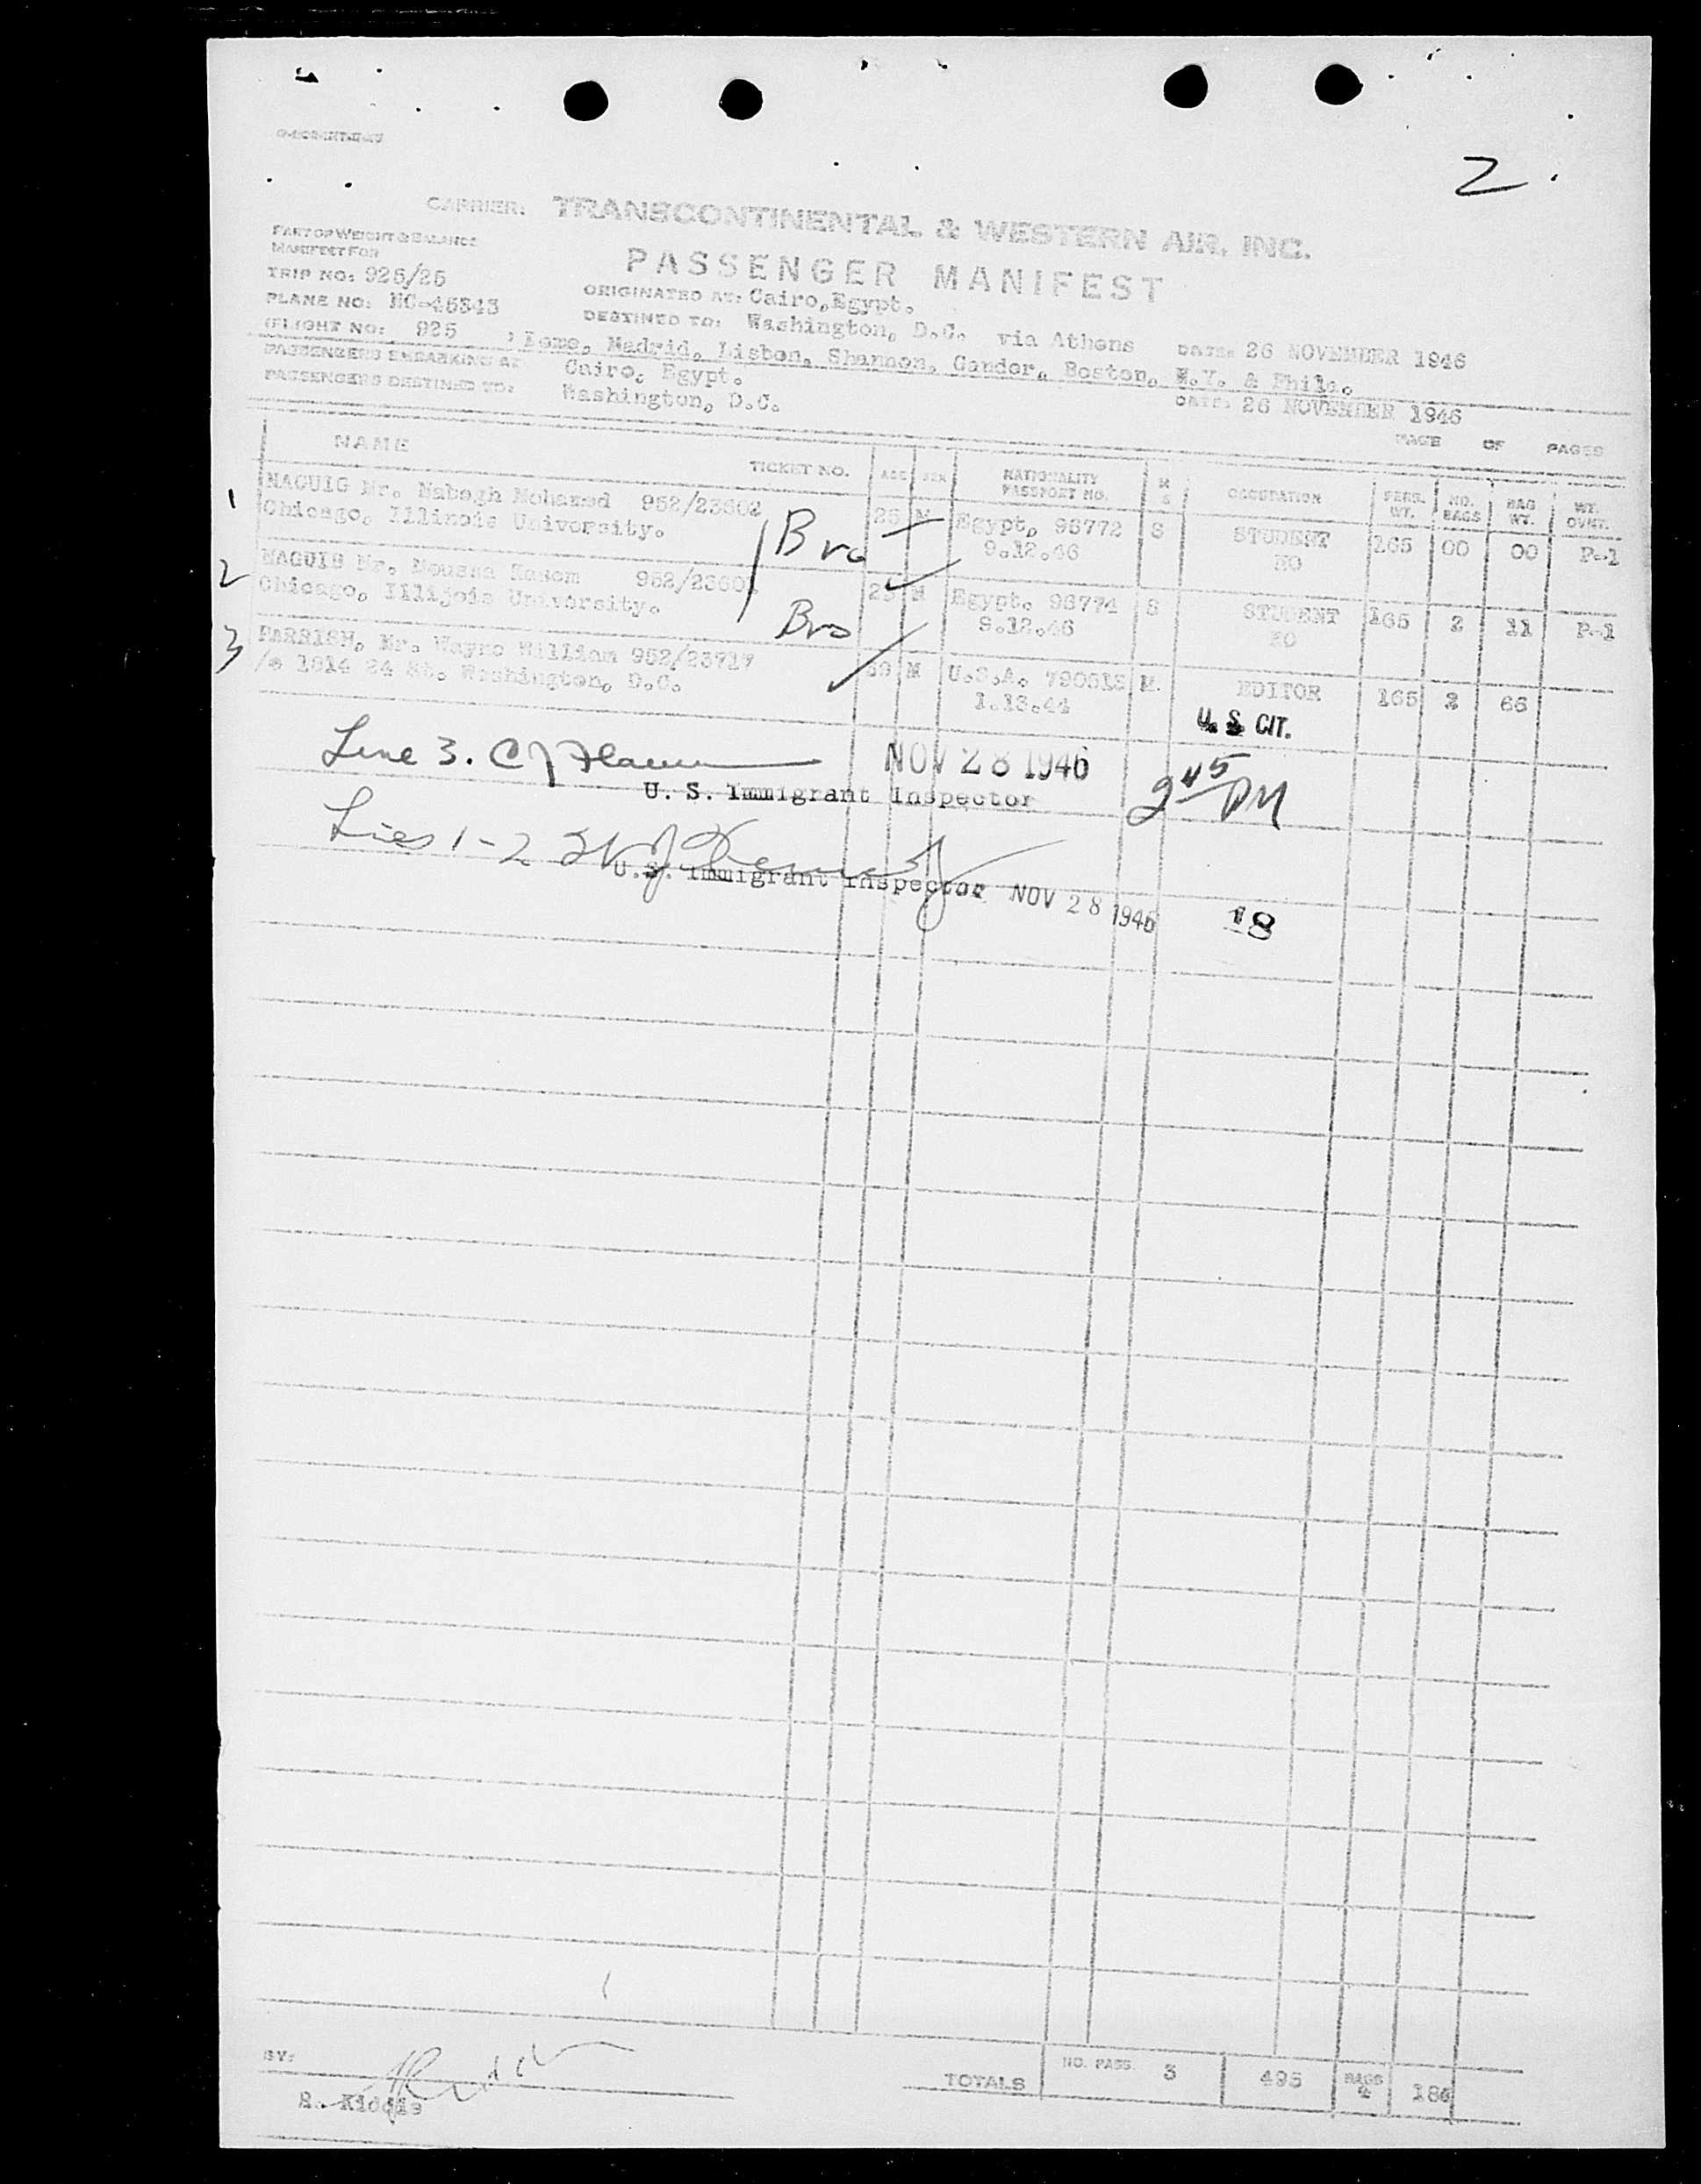 2.
CARRIER: TRANSCONTINENTAL & WESTERN AIR, INC.
PASSENGER MANIFEST
PART OF WEIGHT & BALANCE
MANIFEST FOR
TRIP NO: 925/25
PLANE NO: NC-45343
ORIGINATED AT: Cairo, Egypt.
DESTINED TO: Washington, D.C. via Athens DATE: 26 NOVEMBER 1946
(FLIGHT NO: 925 ; Rome, Madrid, Lisbon, Shannon, Gander, Boston, N.Y. & Phila.
PASSENGERS EMBARKING AT Cairo, Egypt.
PASSENGERS DESTINED TO: Washington, D.C. DATE: 26 NOVEMBER 1946
PAGE OF PAGES
NAME TICKET NO. AGE SEX NATIONALITY PASSPORT NO. M S OCCUPATION PERS. WT. NO. BAGS BAG WT. WT. OVNT.
1 NAGUIG Mr. Nabegh Mohamed 952/23602 Bro 25 M Egypt, 96772 S STUDENT 165 00 00 P-1
Chicago, Illinois University. 9.12.46 NO
2 Mr. Moussa 952/2360 25 M Egypt. 96774 S STUDENT 165 2 11 P-1
Chicago, Illijois University. Bro 9.12.46 NO
3 PARRISH, Mr. Wayne William 952/23717 39 M U.S.A. 790512 M. EDITOR 165 2 66
1814 24 St. Washington, D.C. 1.13.44
U. S. CIT.
Line 3. NOV 28 1946 2 45 PM
U. S. Immigrant Inspector
Lines 1-2
U.S. Immigrant Inspector NOV 28 1946 18
BY:
R. Kiddie
TOTALS NO. PASS. 3 495 BAGS 4